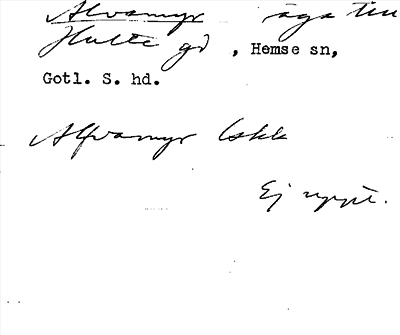 Alvamyr äga till
Hulte gd, Hemse sn,
Gotl. S. hd.
Alfvamyr Eskk
Ej uppt.